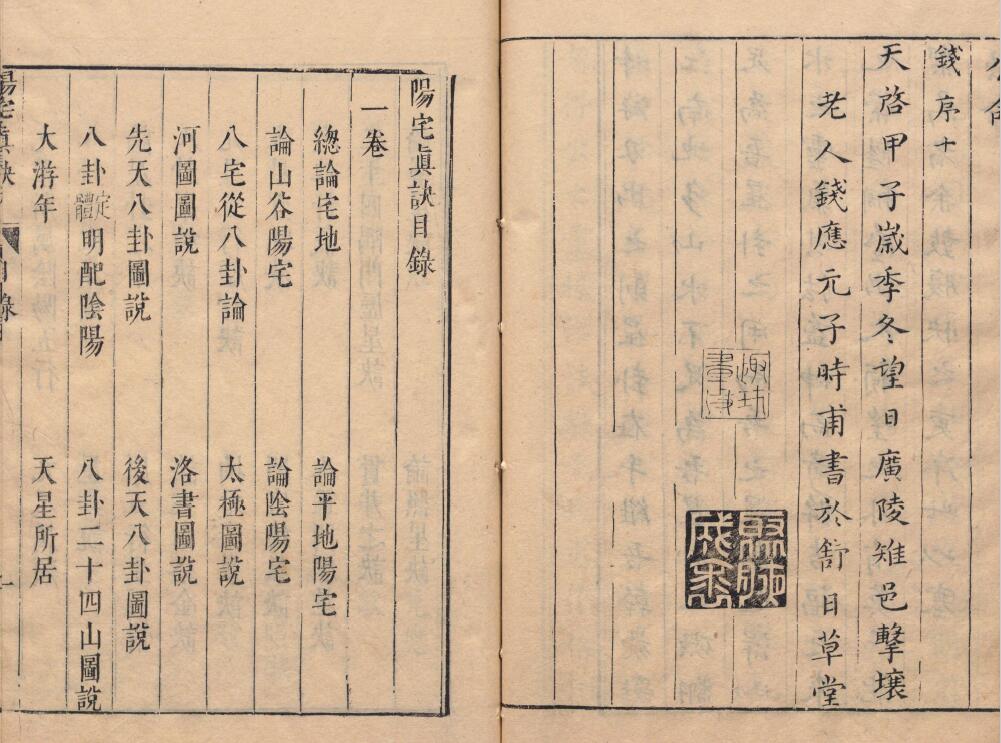 錢序十
天啓甲子歲季冬望日廣陵雉邑擊壤
老人錢應元子時甫書於舒日草堂
陽宅眞訣目錄
一卷
總論宅地 論平地陽宅
論山谷陽宅 論陰陽宅
八宅從八卦論 太極圖說
河圖圖說 洛書圖說
先天八卦圖說 後天八卦圖說
八卦定體明配陰陽 八卦二十四山圖說
大游年 天星所居
陽宅眞訣 目錄 一